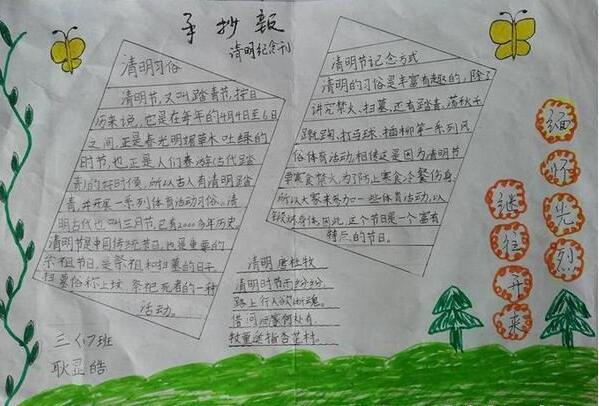 手抄报
清明纪念刊
清明习俗
清明节,又叫踏青节,按日
历来说,它是在每年的4月4日至6日
之间,正是春光明媚草木吐绿的
时节,也正是人们春游(古代踏
青)的好时候,所以古人有清明踏
青,并开展一系列体育活动习俗。清
明古代也叫三月节,已有2000多年历史。
清明节是中国传统节日,也是重要的
祭祖节日,是祭祖和扫墓的日子。
扫墓俗称上坟,祭祀死者的一种
活动。
清明节记念方式
清明的习俗是丰富有趣的,除了
讲究禁火、扫墓,还有踏青、荡秋千
蹴鞠、打马球、插柳等一系列风
俗体育活动。相传这是因为清明节
要寒食禁火,为了防止寒食冷餐伤身,
所以大家来参加一些体育活动,以
锻炼身体。因此,这个节日是一个富有
特点的节日。
清明 唐杜牧
清明时节雨纷纷,
路上行人欲断魂。
借问酒家何处有,
牧童遥指杏花村。
缅怀先烈
继往开来
三(7)班
耿显皓